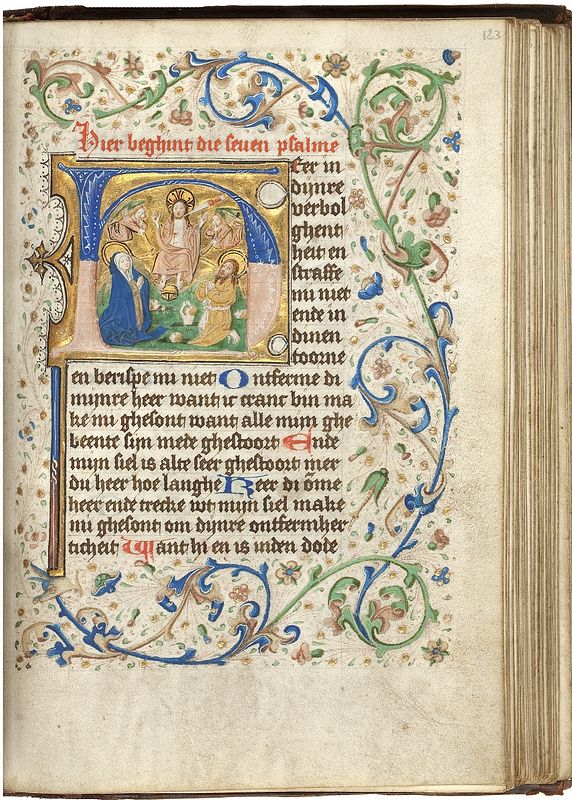 123
Hier beghint die seuen psalme
Heer in
dijnre
verbol
ghent
heit en
straffe
mi niet
ende in
dinen
toorne
en berispe mi niet Ontferme di
mijnre heer want ic cranc bin ma
ke mi ghesont want alle mijn ghe
beente sijn mede ghestoort Ende
mijn siel is alte seer ghestoort mer
du heer hoe langhe Keer di ōme
heer ende trecke wt mijn siel make
mi ghesont om dijnre ontfermher
ticheit Want hi en is inden dode